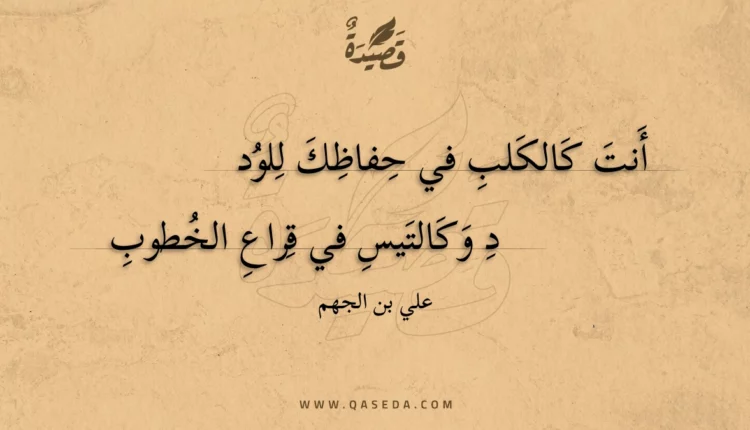 قَصِيدَةٌ
أَنتَ كَالكَلبِ في حِفاظِكَ لِلوُد
دِ وَكَالتَيسِ في قِراعِ الخُطوبِ
علي بن الجهم
WWW.QASEDA.COM